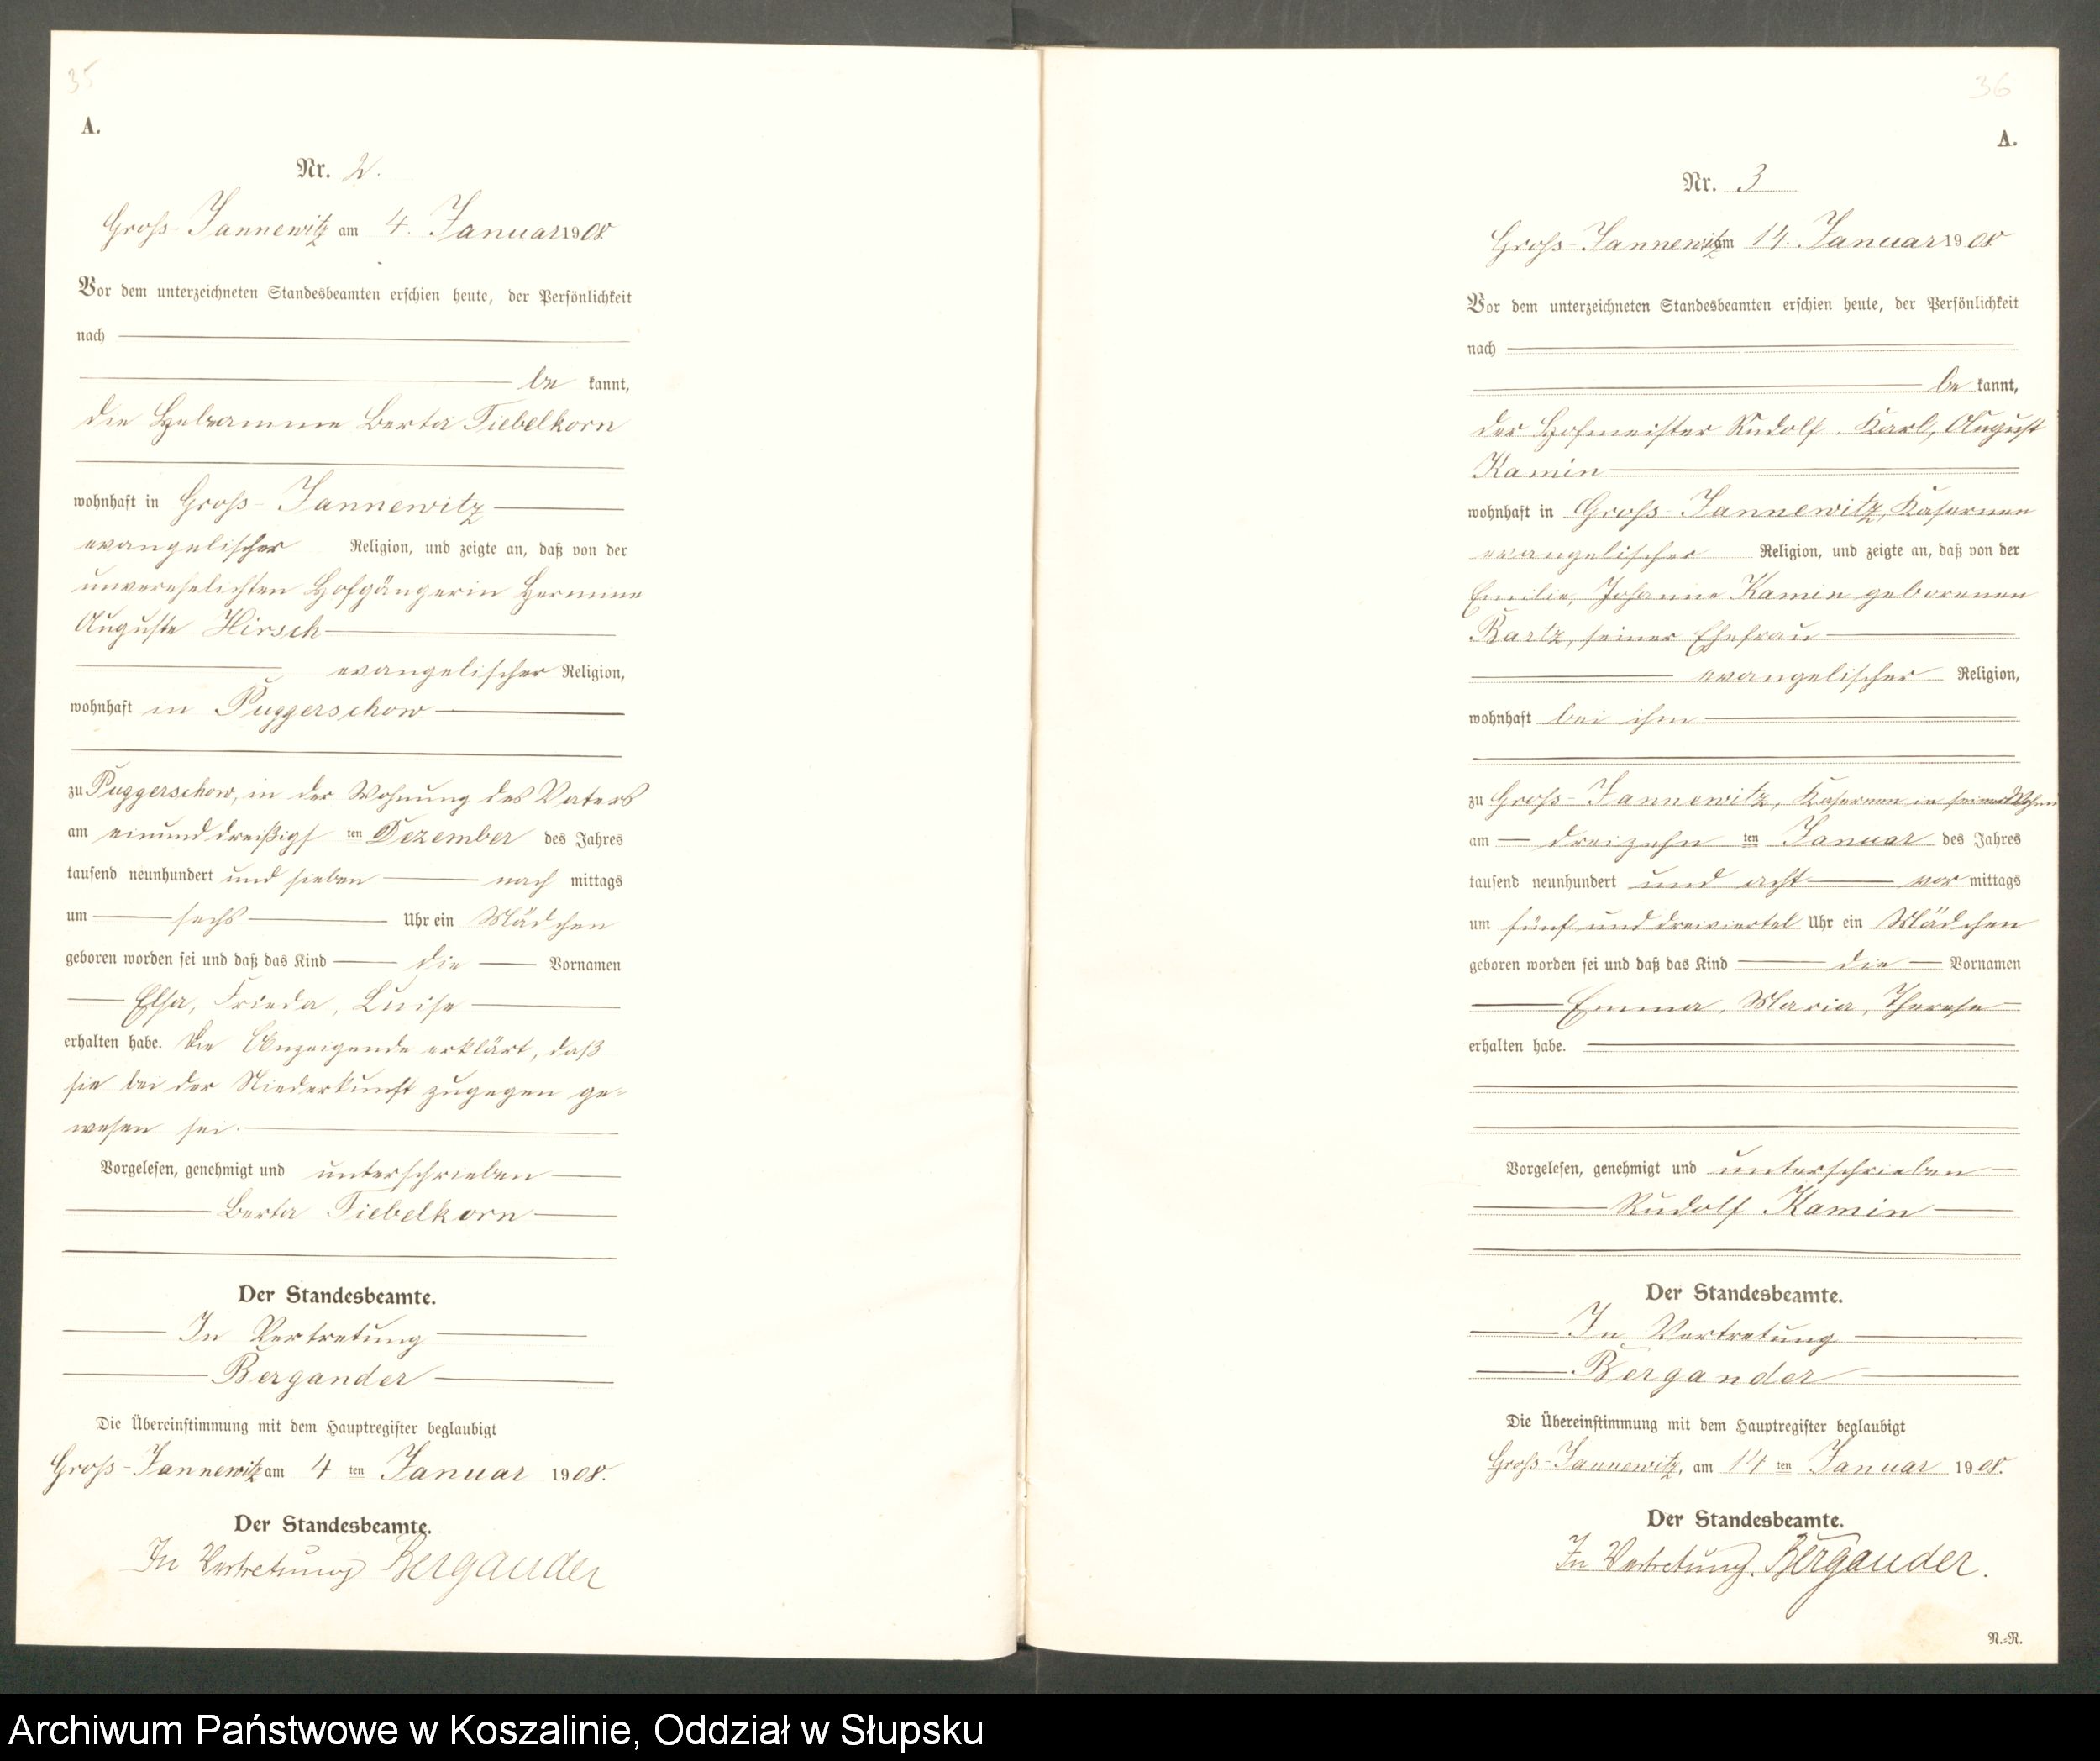 35
A.
Nr. 2.
Groß-Jannewitz am 4. Januar 1908.
Vor dem unterzeichneten Standesbeamten erschien heute, der Persönlichkeit
nach
be kannt,
die Hebamme Berta Tiebelkorn
wohnhaft in Groß-Jannewitz
evangelischer Religion, und zeigte an, daß von der
unverehelichten Hofgängerin Hermine
Auguste Hirsch
evangelischer Religion,
wohnhaft in Puggerschow
zu Puggerschow, in der Wohnung des Vaters
am einunddreißigs ten Dezember des Jahres
tausend neunhundert und sieben nach mittags
um sechs Uhr ein Mädchen
geboren worden sei und daß das Kind die Vornamen
Elsa, Frieda, Luise
erhalten habe. Die Anzeigende erklärt, daß
sie bei der Niederkunft zugegen ge-
wesen sei.
Vorgelesen, genehmigt und unterschrieben
Berta Tiebelkorn
Der Standesbeamte.
In Vertretung
Bergander
Die Übereinstimmung mit dem Hauptregister beglaubigt
Groß-Jannewitz am 4 ten Januar 1908.
Der Standesbeamte.
In Vertretung Bergander
36
A.
Nr. 3
Groß-Jannewitz am 14. Januar 1908
Vor dem unterzeichneten Standesbeamten erschien heute, der Persönlichkeit
nach
be kannt,
der Hofmeister Rudolf, Karl, August
Kamin
wohnhaft in Groß-Jannewitz, Kasernen
evangelischer Religion, und zeigte an, daß von der
Emilie, Johanne Kamin geborenen
Bartz, seiner Ehefrau
evangelischer Religion,
wohnhaft bei ihm
zu Groß-Jannewitz, Kasernen in seiner
am dreizehn ten Januar des Jahres
tausend neunhundert und acht vor mittags
um fünf und dreiviertel Uhr ein Mädchen
geboren worden sei und daß das Kind die Vornamen
Emma, Maria, Therese
erhalten habe.
Vorgelesen, genehmigt und unterschrieben
Rudolf Kamin
Der Standesbeamte.
In Vertretung
Bergander
Die Übereinstimmung mit dem Hauptregister beglaubigt
Groß-Jannewitz, am 14 ten Januar 1908.
Der Standesbeamte.
In Vertretung. Bergander.
N.-R.
Archiwum Państwowe w Koszalinie, Oddział w Słupsku